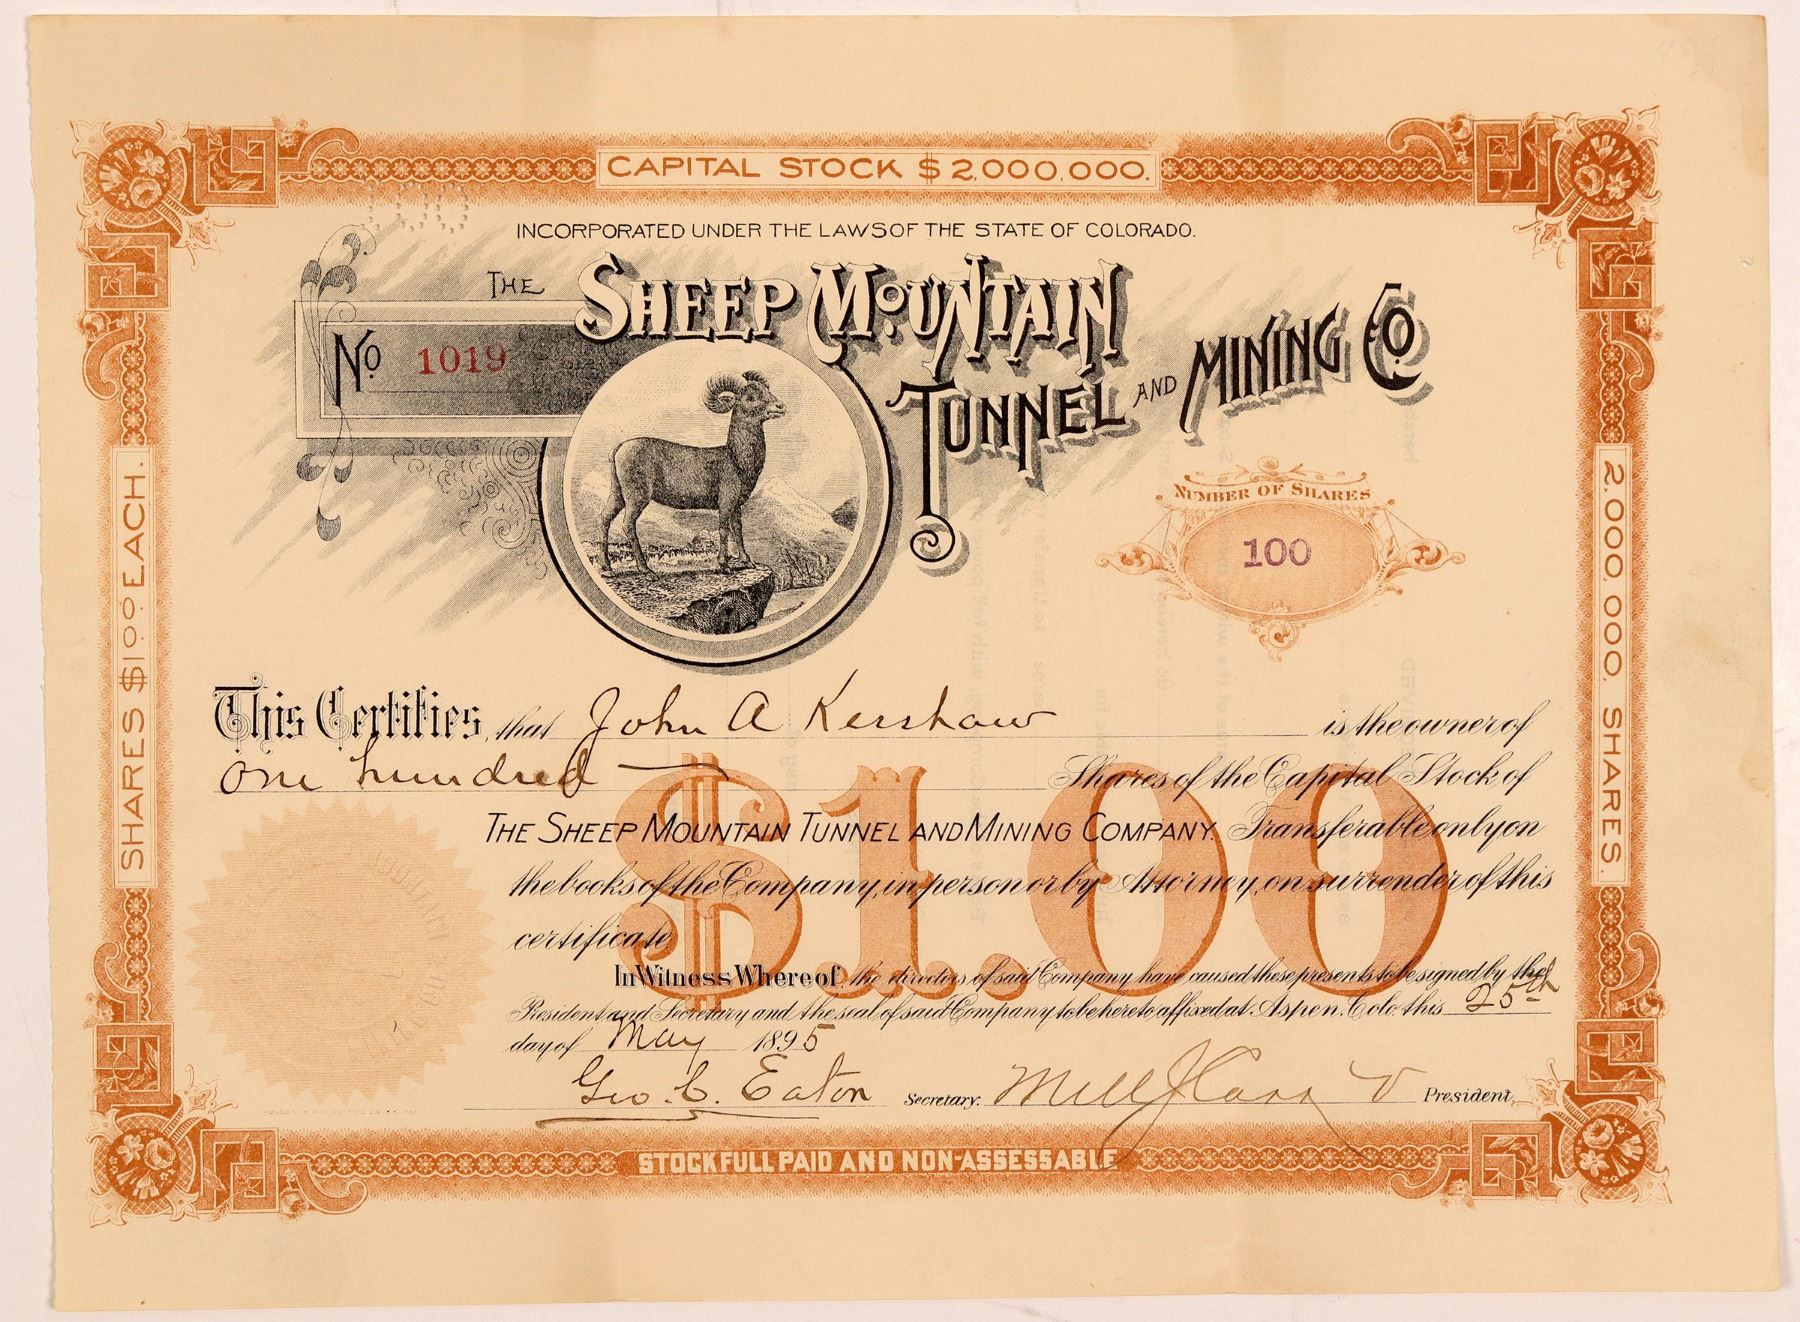 CAPITAL STOCK $2,000,000.
INCORPORATED UNDER THE LAWS OF THE STATE OF COLORADO.
THE SHEEP MOUNTAIN
TUNNEL AND MINING CO.
No 1019
NUMBER OF SHARES
100
SHARES $1.00 EACH.
2,000,000. SHARES.
This Certifies that John A Kershaw is the owner of
One hundred Shares of the Capital Stock of
THE SHEEP MOUNTAIN TUNNEL AND MINING COMPANY. Transferable only on
the books of the Company, in person or by Attorney, on surrender of this
certificate
$1.00
In Witness Whereof, the directors of said Company have caused these presents to be signed by the
President and Secretary and the seal of said Company to be hereto affixed at Aspen, Colo. this 25th
day of May 1895
Geo. C. Eaton Secretary. President.
STOCK FULL PAID AND NON-ASSESSABLE